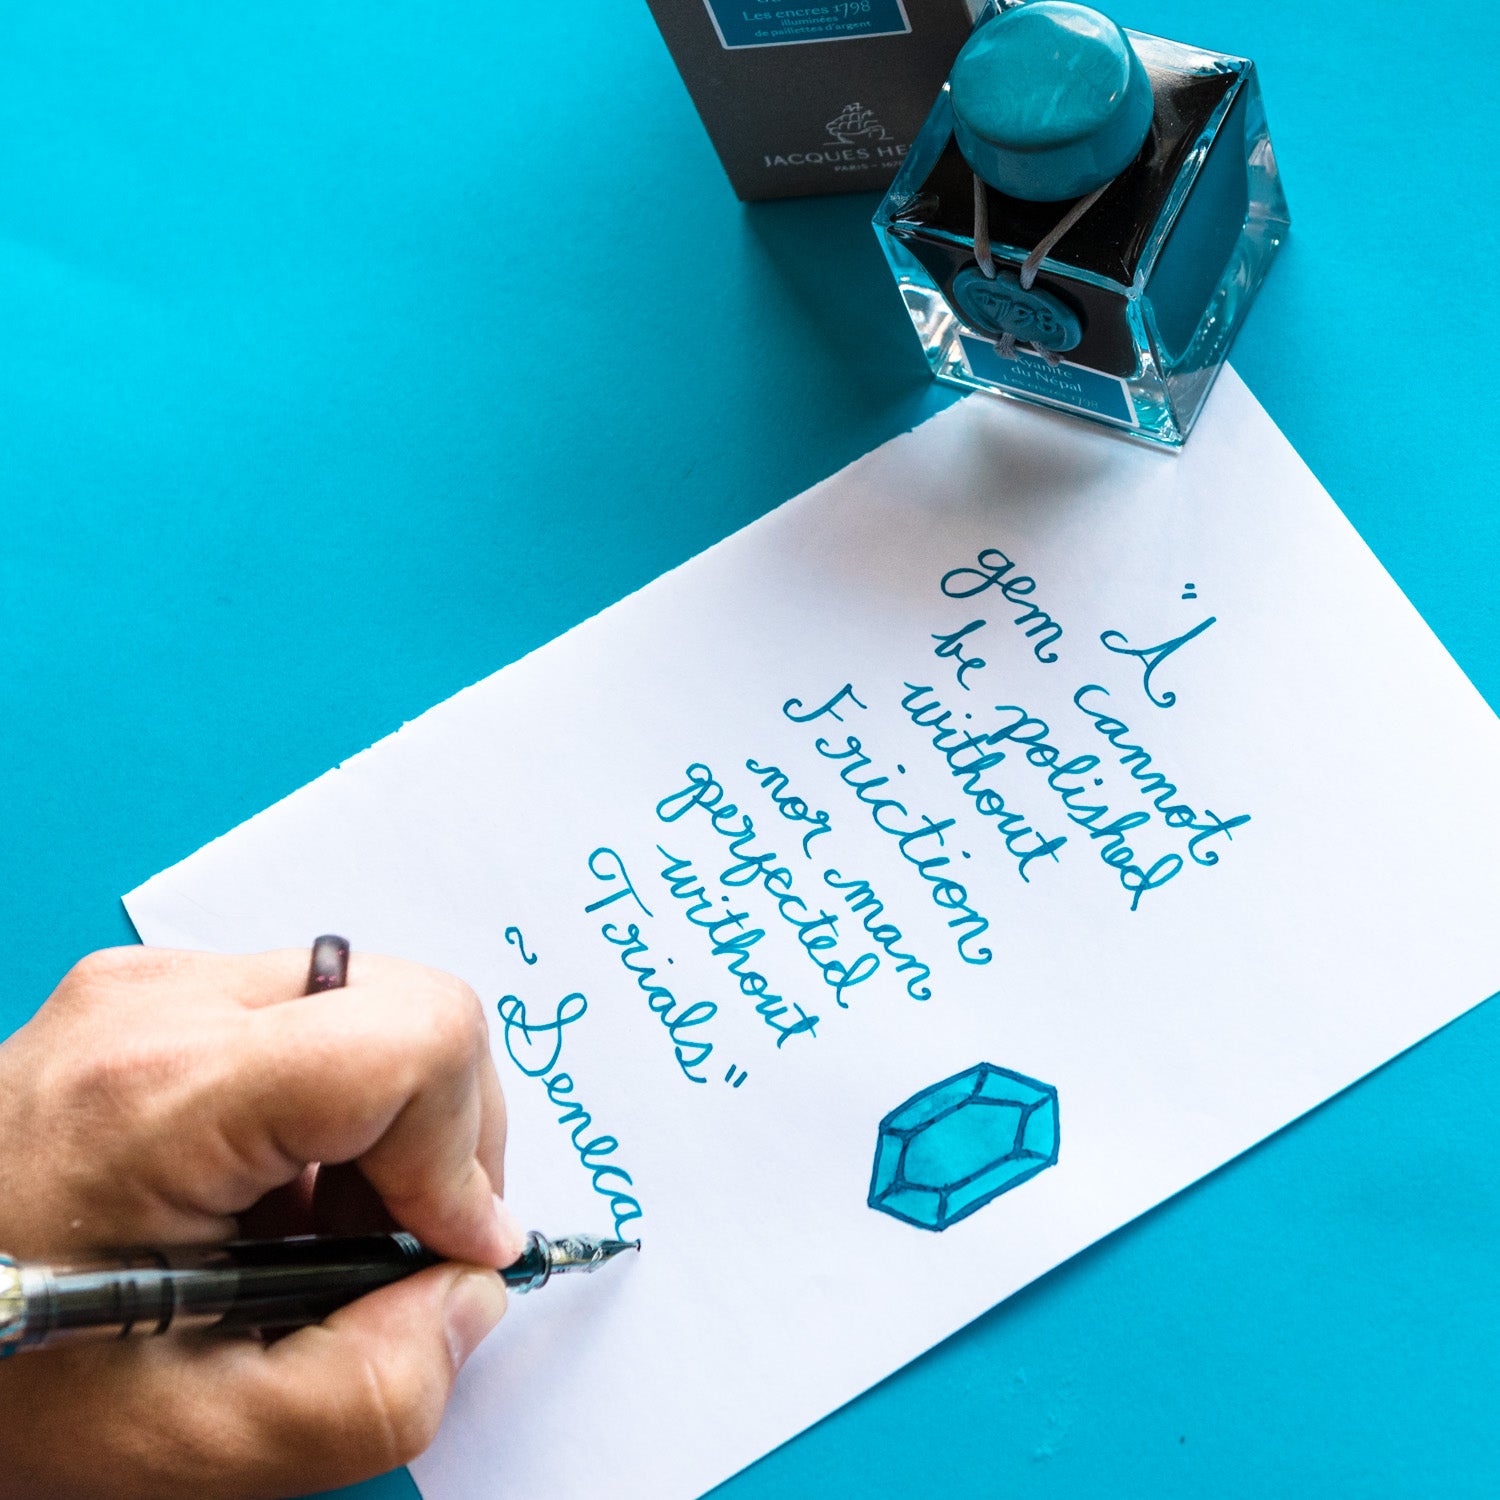 Les encres 1798
illuminées
de paillettes d'argent
JACQUES HE
PARIS - 167
1798
Kyanite
du Népal
Les encres 1798
"A
gem cannot
be polished
without
Friction
nor man
perfected
without
Trials"
~ Seneca